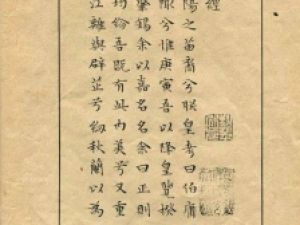 經
陽之苗裔兮朕皇考曰伯庸
陬兮惟庚寅吾以降皇覽揆
肇錫余以嘉名名余曰正則
均紛吾既有此内美兮又重
江離與辟芷兮紉秋蘭以為